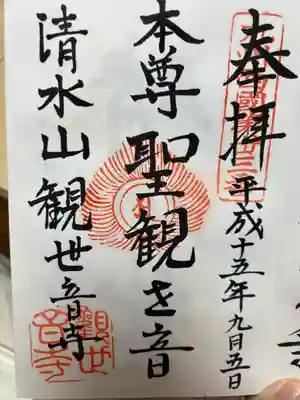 奉拝
平成十五年九月五日
本尊 聖観世音
清水山観世音寺
觀世音寺